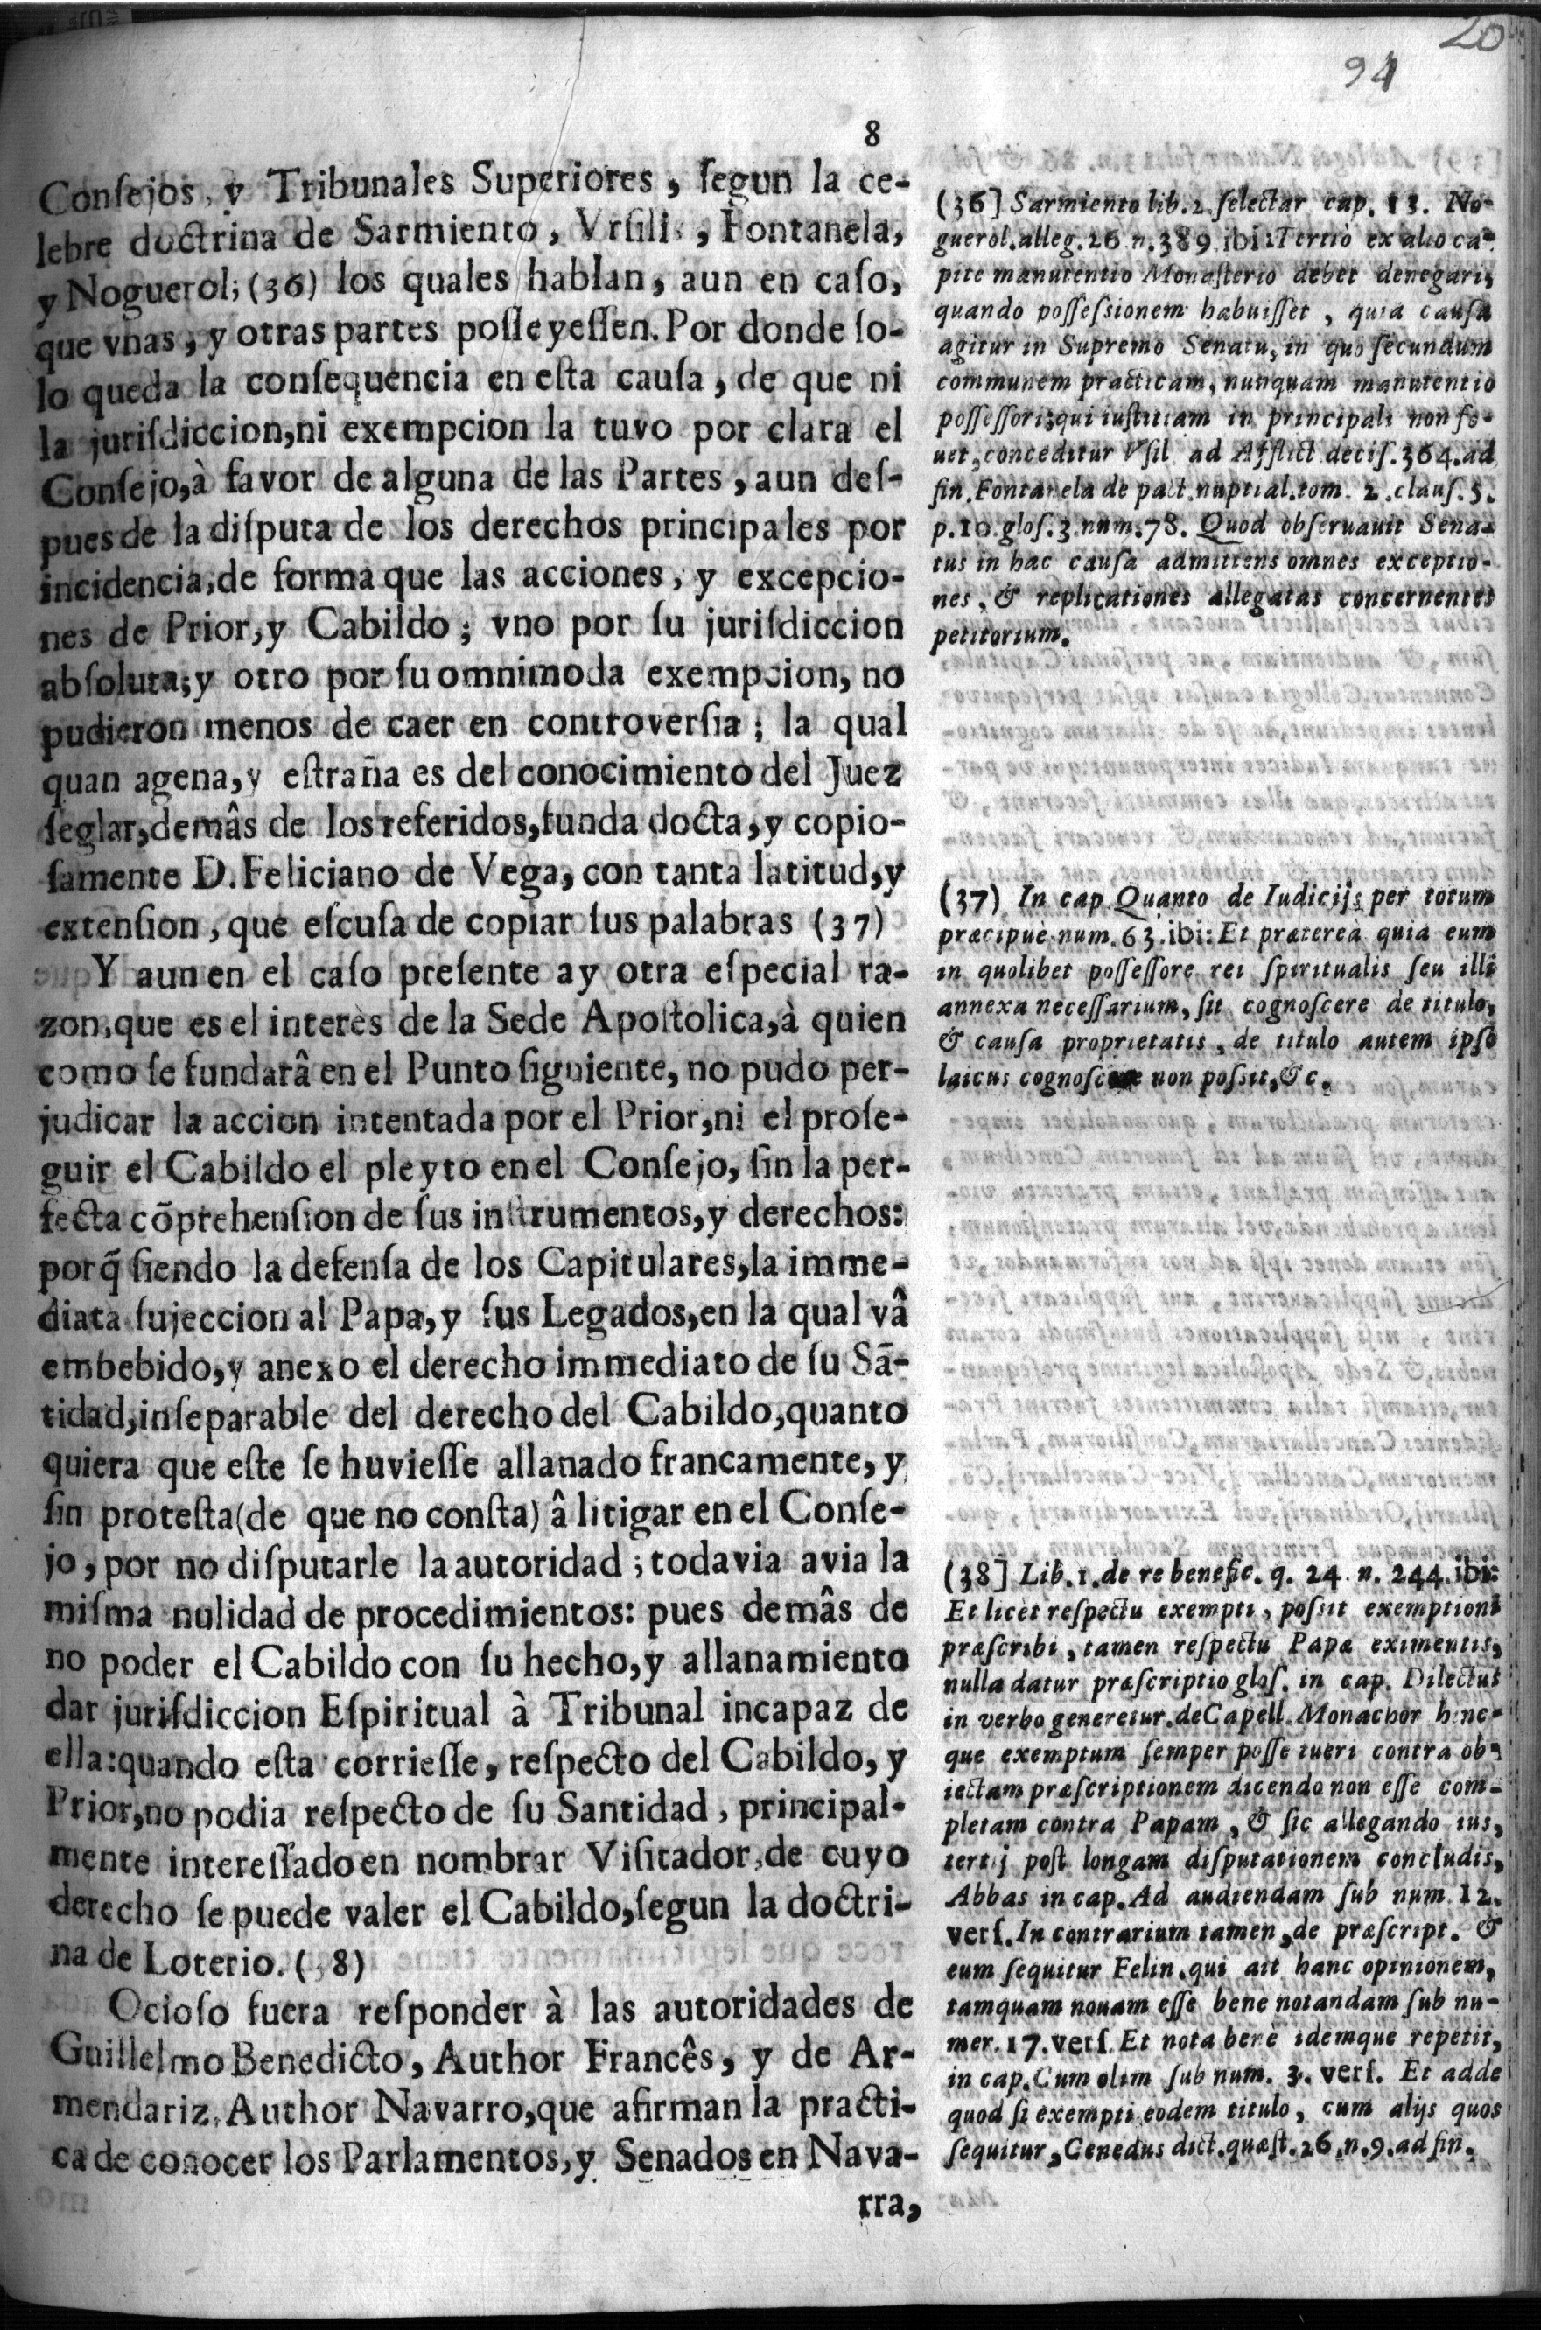 20
94
8
Conſejos, y Tribunales Superiores, ſegun la ce-
lebre doctrina de Sarmiento, Vrſilis, Fontanela,
y Noguerol, (36) los quales hablan, aun en caſo,
que vnas, y otras partes poſſeyeſſen. Por donde ſo-
lo queda la conſequencia en eſta cauſa, de que ni
la juriſdiccion, ni exempcion la tuvo por clara el
Conſejo, à favor de alguna de las Partes, aun deſ-
pues de la diſputa de los derechos principales por
incidencia, de forma que las acciones, y excepcio-
nes de Prior, y Cabildo; vno por ſu juriſdiccion
abſoluta; y otro por ſu omnimoda exempcion, no
pudieron menos de caer en controverſia; la qual
quan agena, y eſtraña es del conocimiento del Juez
ſeglar, demâs de los referidos, funda docta, y copio-
ſamente D. Feliciano de Vega, con tanta latitud, y
extenſion, que eſcuſa de copiar ſus palabras (37)
Y aun en el caſo preſente ay otra eſpecial ra-
zon, que es el interès de la Sede Apoſtolica, à quien
como ſe fundarâ en el Punto ſiguiente, no pudo per-
judicar la accion intentada por el Prior, ni el proſe-
guir el Cabildo el pleyto en el Conſejo, ſin la per-
fecta cõprehenſion de ſus inſtrumentos, y derechos:
porq̃ ſiendo la defenſa de los Capitulares, la imme-
diata ſujeccion al Papa, y ſus Legados, en la qual vâ
embebido, y anexo el derecho immediato de ſu Sã-
tidad, inſeparable del derecho del Cabildo, quanto
quiera que eſte ſe huvieſſe allanado francamente, y
ſin proteſta (de que no conſta) â litigar en el Conſe-
jo, por no diſputarle la autoridad; todavia avia la
miſma nulidad de procedimientos: pues demâs de
no poder el Cabildo con ſu hecho, y allanamiento
dar juriſdiccion Eſpiritual à Tribunal incapaz de
ella: quando eſta corrieſſe, reſpecto del Cabildo, y
Prior, no podia reſpecto de ſu Santidad, principal-
mente intereſſado en nombrar Viſitador, de cuyo
derecho ſe puede valer el Cabildo, ſegun la doctri-
na de Loterio. (38)
Ocioſo fuera reſponder à las autoridades de
Guillelmo Benedicto, Author Francês, y de Ar-
mendariz, Author Navarro, que afirman la practi-
ca de conocer los Parlamentos, y Senados en Nava-
rra,
(36] Sarmiento lib. 2. ſelectar cap. 13. No-
guerol. alleg. 26 n. 389. ibi: Tertiò ex alio ca-
pite manutentio Monaſterio debet denegari,
quando poſſeſsionem habuiſſet, quia cauſa
agitur in Supremo Senatu, in quo ſecundum
communem practicam, nunquam manutentio
poſſeſſori, qui iuſtitiam in principali non fo-
uet, conceditur Vrſil ad Afflict deciſ. 364. ad
fin. Fontanela de pact. nuptial. tom. 2. clauſ. 5.
p. 10. gloſ. 3. num. 78. Quod obſeruauit Sena-
tus in hac cauſa admittens omnes exceptio-
nes, & replicationes allegatas concernentes
petitorium.
(37) In cap. Quanto de Iudicijs per totum
præcipuè num. 63. ibi: Et præterea quia eum
in quolibet poſſeſſore rei ſpiritualis ſeu illi
annexa neceſſarium, ſit cognoſcere de titulo,
& cauſa proprietatis, de titulo autem ipſo
laicus cognoſcere non poſsit, &c.
(38] Lib. 1. de re benefic. q. 24. n. 244. ibi:
Et licèt reſpectu exempti, poſsit exemptioni
præſcribi, tamen reſpectu Papæ eximentis,
nulla datur præſcriptio gloſ. in cap. Dilectus
in verbo generetur. de Capell. Monachor hinc-
que exemptum ſemper poſſe tueri contra ob-
iectam præſcriptionem dicendo non eſſe com-
pletam contra Papam, & ſic allegando ius,
tertij poſt longam diſputationem concludis,
Abbas in cap. Ad audiendam ſub num. 12.
verſ. In contrarium tamen, de præſcript. &
eum ſequitur Felin. qui ait hanc opinionem,
tamquam nouam eſſe bene notandam ſub nu-
mer. 17. verſ. Et nota benè idemque repetit,
in cap. Cum olim ſub num. 3. verſ. Et adde
quod ſi exempti eodem titulo, cum alijs quos
ſequitur, Genedus dict. quæſt. 26. n. 9. ad fin.